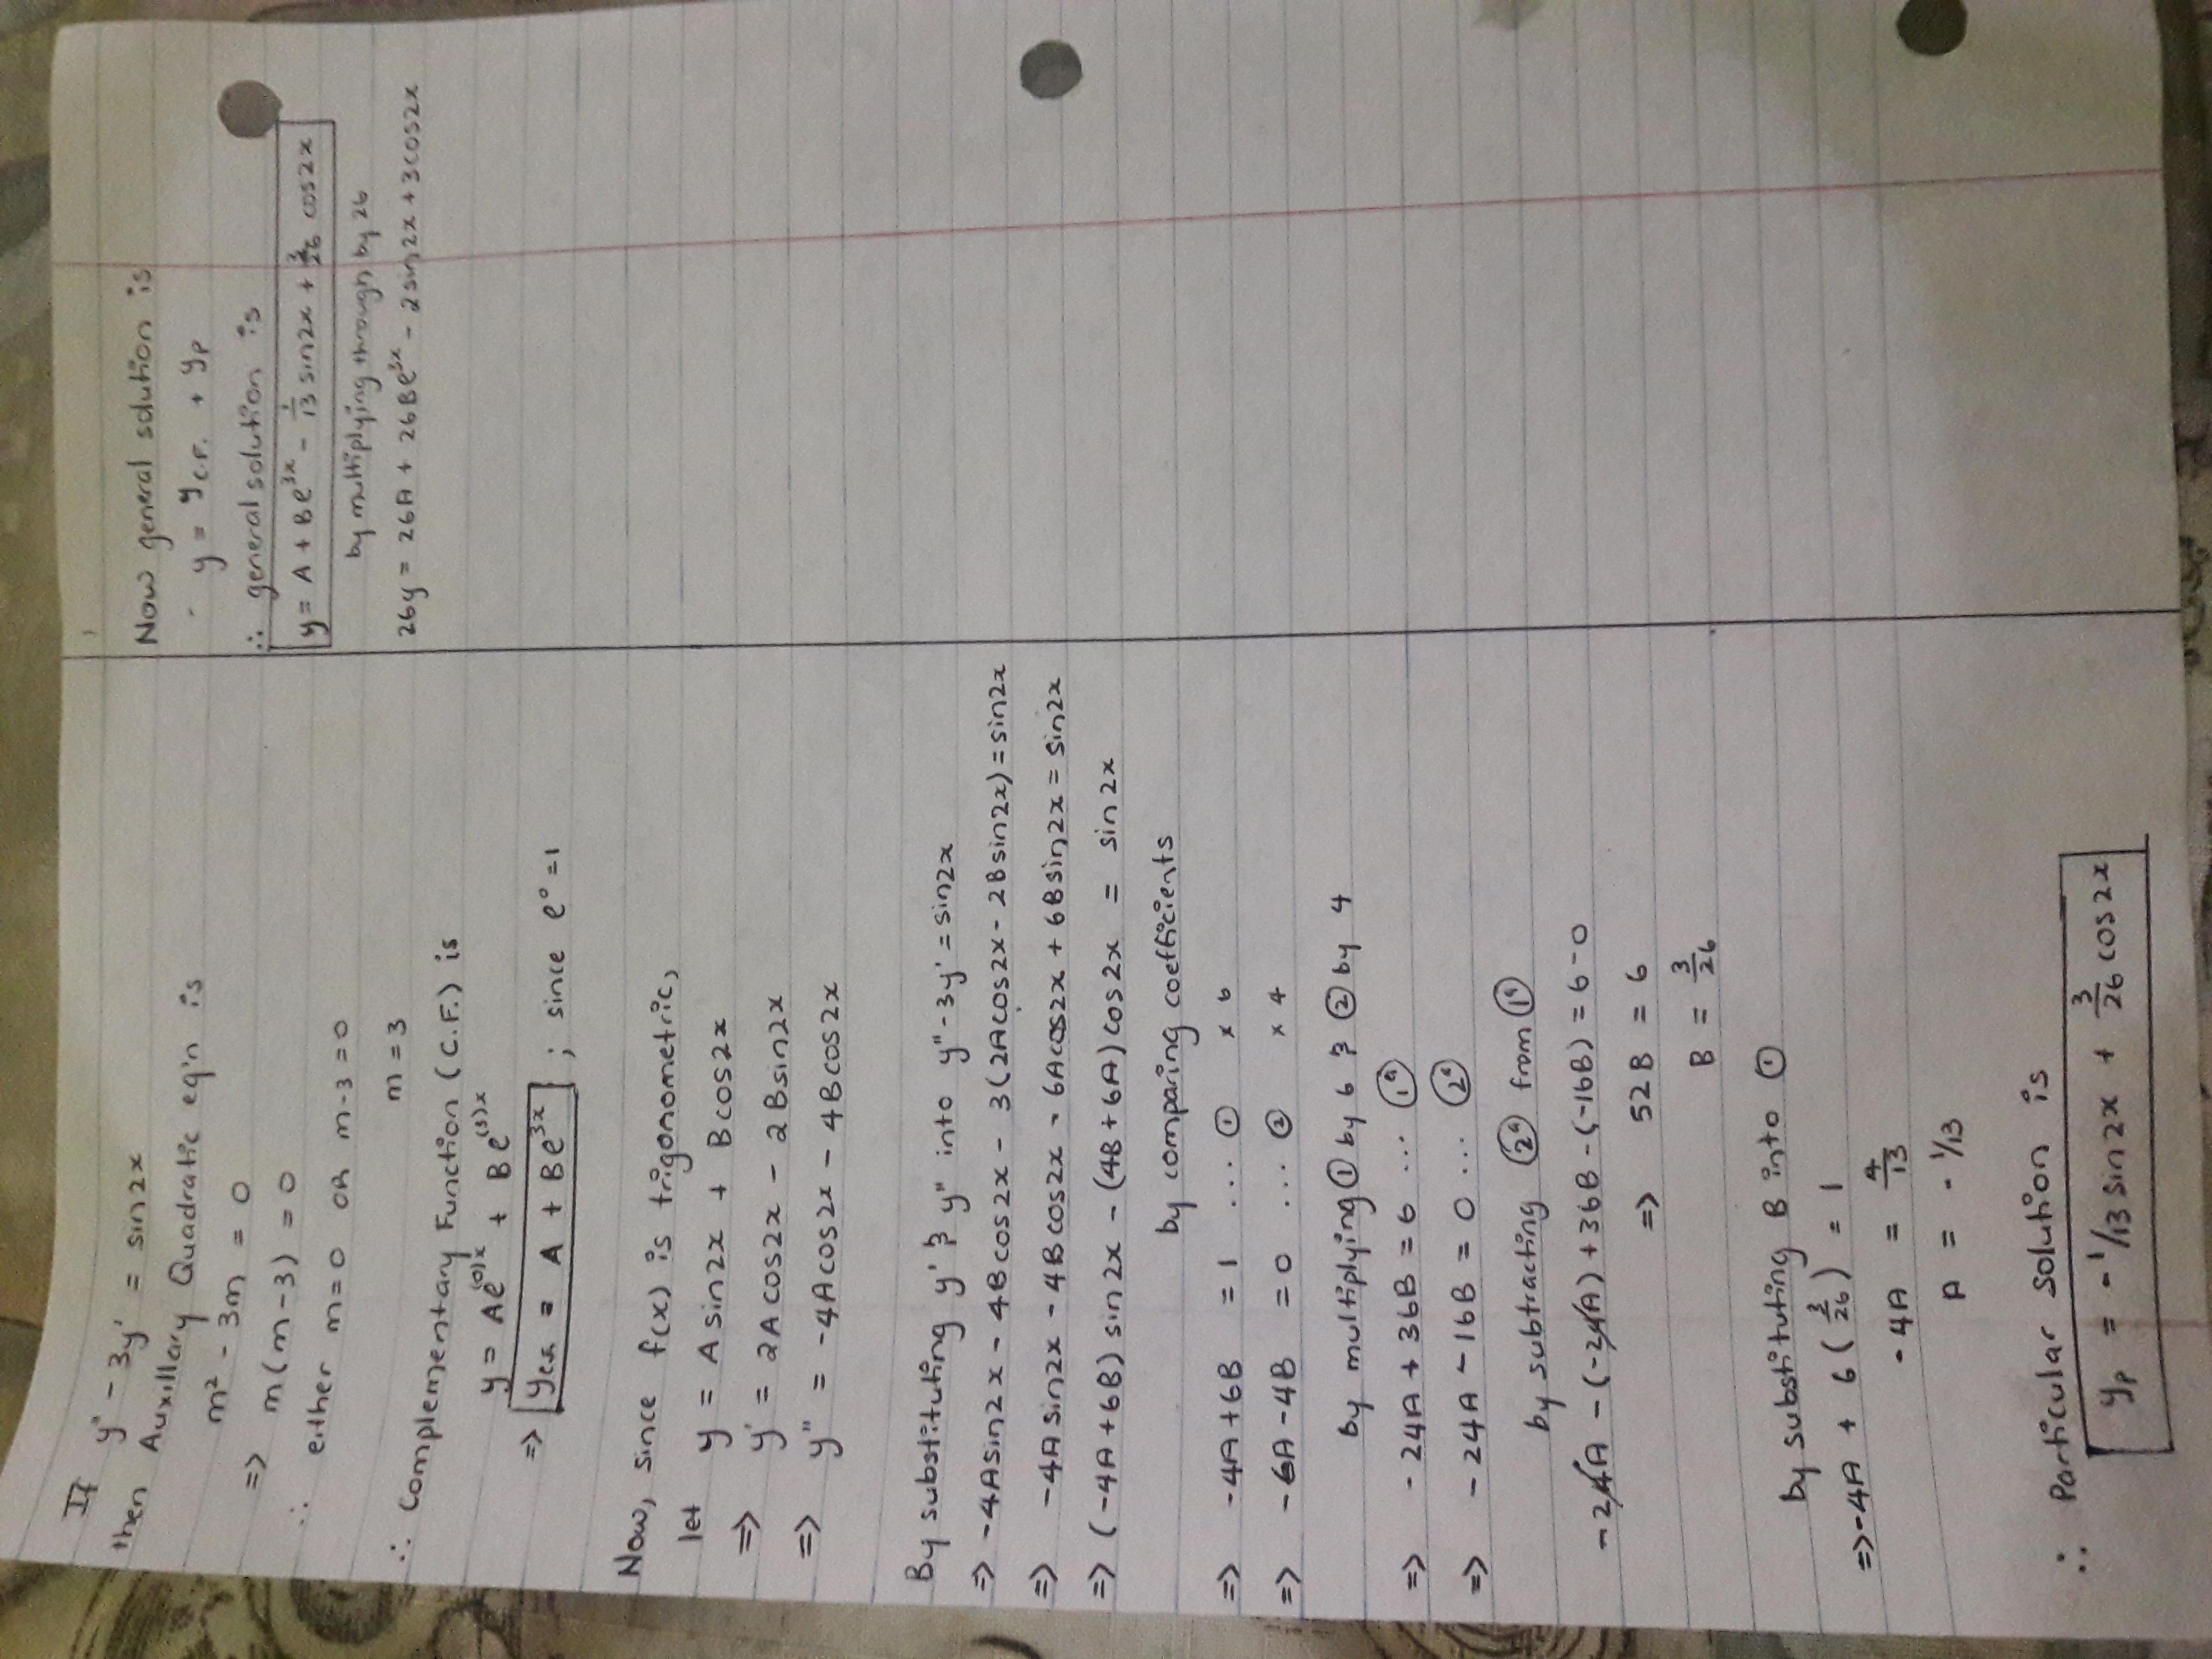 If y'' - 3y' = sin2x
then Auxillary Quadratic eq'n is
m² - 3m = 0
=> m(m-3) = 0
∴ either m=0 OR m-3=0
m=3
∴ Complementary Function (C.F.) is
y = Ae^(0)x + Be^(3)x
=> y_C.F. = A + Be^3x ; since e^0 = 1
Now, since f(x) is trigonometric,
let y = Asin2x + Bcos2x
=> y' = 2Acos2x - 2Bsin2x
=> y'' = -4Acos2x - 4Bcos2x
By substituting y' & y'' into y''-3y' = sin2x
=> -4Asin2x - 4Bcos2x - 3(2Acos2x - 2Bsin2x) = sin2x
=> -4Asin2x - 4Bcos2x - 6Acos2x + 6Bsin2x = sin2x
=> (-4A+6B)sin2x - (4B+6A)cos2x = sin2x
by comparing coefficients
=> -4A+6B = 1 ... ① × 6
=> -6A-4B = 0 ... ② × 4
by multiplying ① by 6 & ② by 4
=> -24A+36B = 6 ... (1ª)
=> -24A-16B = 0 ... (2ª)
by subtracting (2ª) from (1ª)
-24A - (-24A) + 36B - (-16B) = 6-0
=> 52B = 6
B = 3/26
by substituting B into ①
=> -4A + 6(3/26) = 1
-4A = 4/13
A = -1/13
∴ Particular Solution is
y_P = -1/13 sin2x + 3/26 cos2x
Now general solution is
y = y_C.F. + y_P
∴ general solution is
y = A + Be^3x - 1/13 sin2x + 3/26 cos2x
by multiplying through by 26
26y = 26A + 26Be^3x - 2sin2x + 3cos2x